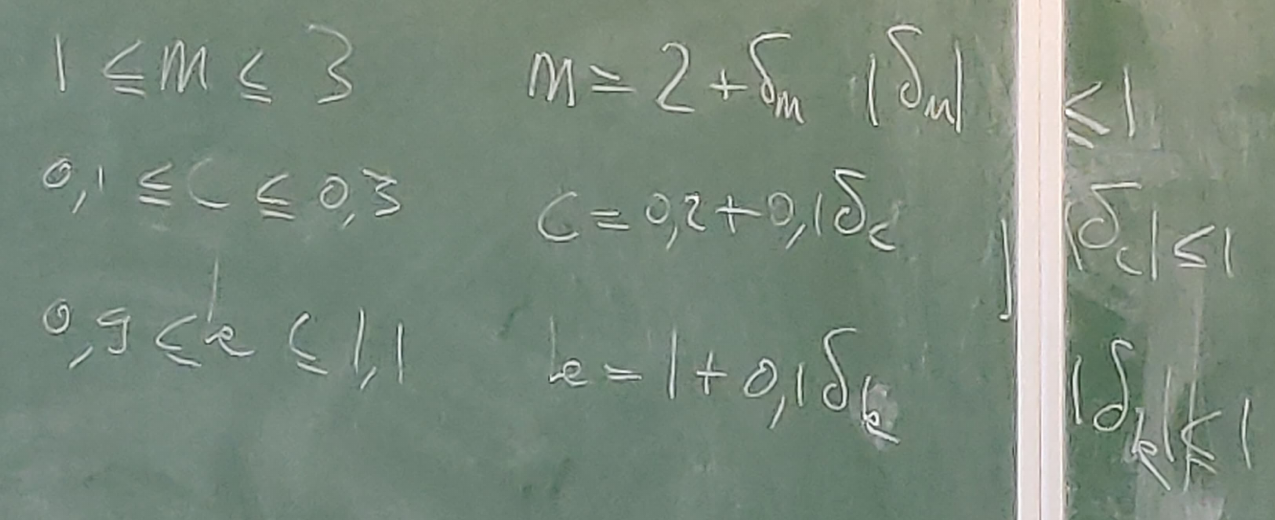 1 ≤ m ≤ 3 m = 2 + δ_m |δ_m| ≤ 1
0,1 ≤ c ≤ 0,3 c = 0,2 + 0,1 δ_c |δ_c| ≤ 1
0,9 ≤ k ≤ 1,1 k = 1 + 0,1 δ_k |δ_k| ≤ 1